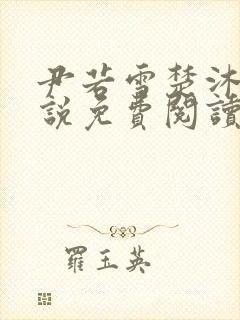 尹若雪楚沐
說免費閱讀
羅玉英